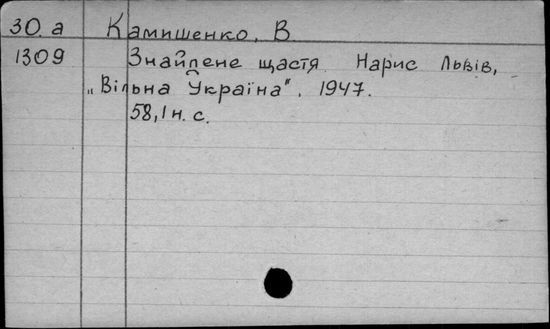 30. а Камишенко, В.
1309 Знайдене щастя. Нарис Львів,
„Вільна Україна". 1947.
58, 1 н. с.